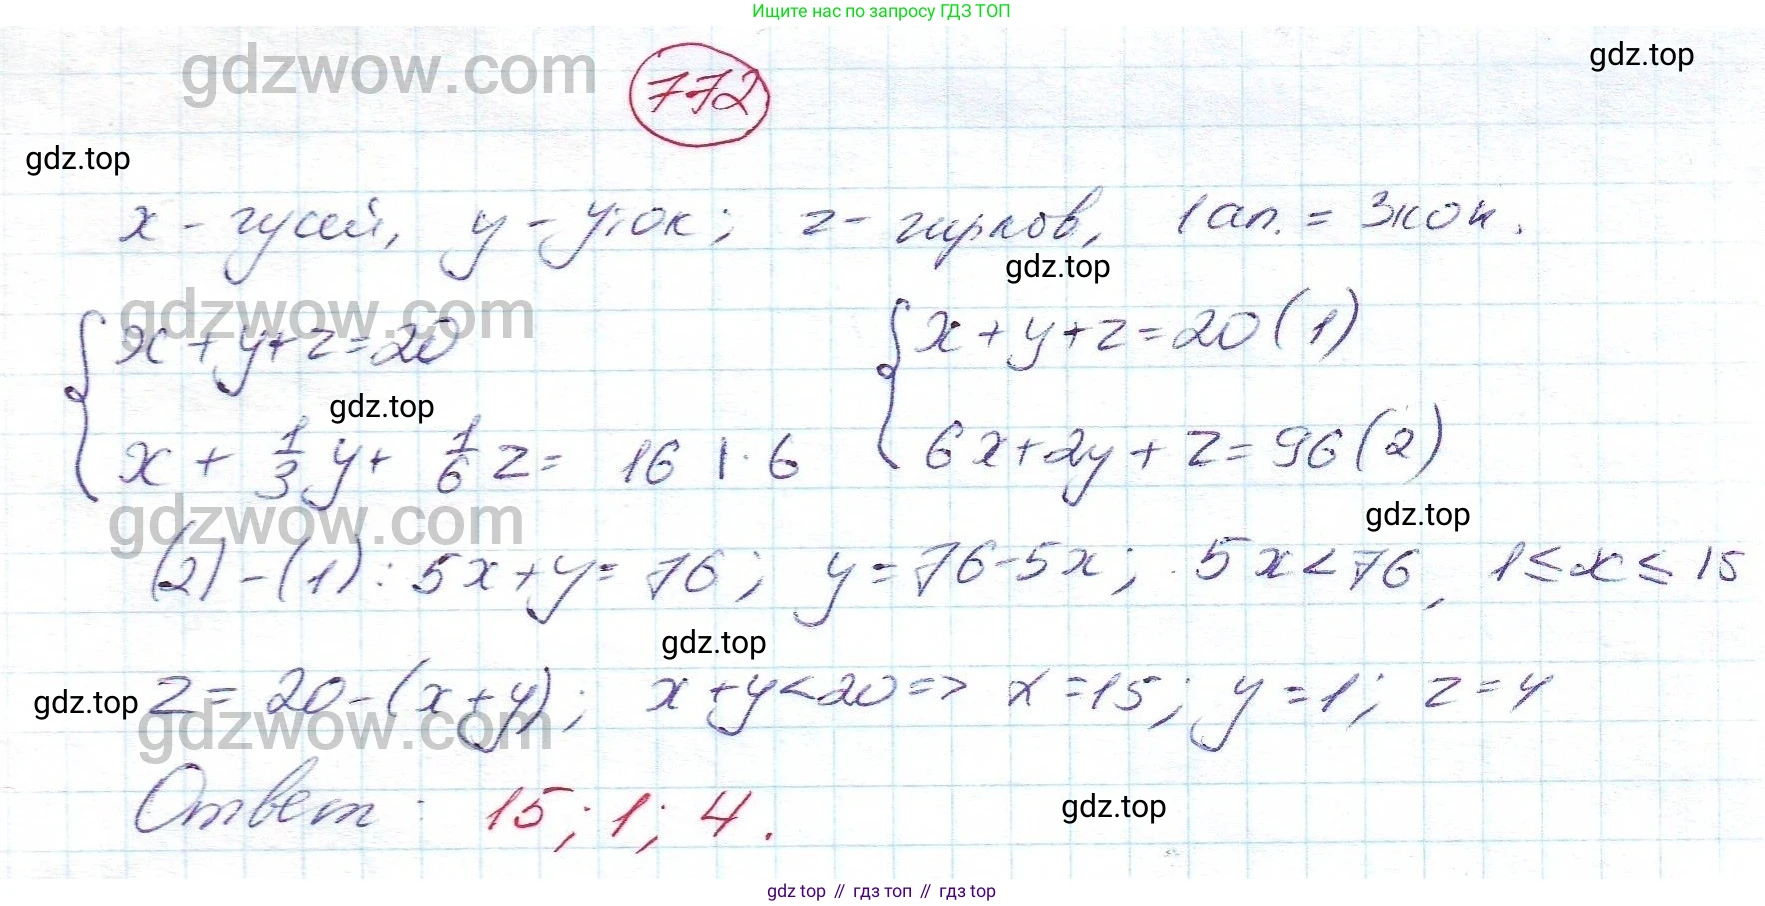 Ищите нас по запросу ГДЗ ТОП
gdzwow.com
gdz.top
772
gdz.top
x - гусей, y - уток; z - чирков, 1 ал. = 3 коп.
gdz.top
gdzwow.com
{ x + y + z = 20 { x + y + z = 20 (1)
gdz.top
x + 1/3 y + 1/6 z = 16 | · 6 6x + 2y + z = 96 (2)
gdzwow.com
gdz.top
(2) - (1): 5x + y = 76; y = 76 - 5x; 5x < 76, 1 ≤ x ≤ 15
gdz.top
gdz.top
z = 20 - (x + y); x + y < 20 => x = 15; y = 1; z = 4
gdzwow.com
Ответ: 15; 1; 4.
gdz.top
gdz top // гдз топ // gdz top